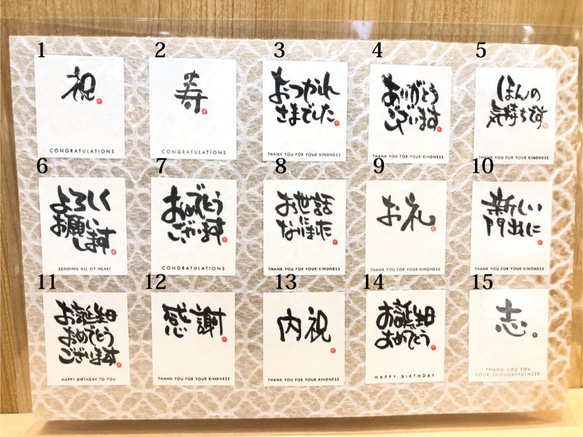 1
祝
CONGRATULATIONS
2
寿
CONGRATULATIONS
3
おつかれ
さまでした
THANK YOU FOR YOUR KINDNESS
4
ありがとう
ございます
THANK YOU FOR YOUR KINDNESS
5
ほんの
気持ちです
THANK YOU FOR YOUR KINDNESS
6
よろしく
お願い
します
SENDING ALL MY HEART
7
おめでとう
ございます
CONGRATULATIONS
8
お世話
になりました
THANK YOU FOR YOUR KINDNESS
9
お礼
THANK YOU FOR YOUR KINDNESS
10
新しい
門出に
THANK YOU FOR YOUR KINDNESS
11
お誕生日
おめでとう
ございます
HAPPY BIRTHDAY TO YOU
12
感謝
THANK YOU FOR YOUR KINDNESS
13
内祝
THANK YOU FOR YOUR KINDNESS
14
お誕生日
おめでとう
HAPPY BIRTHDAY
15
志
THANK YOU FOR
YOUR THOUGHTFULNESS